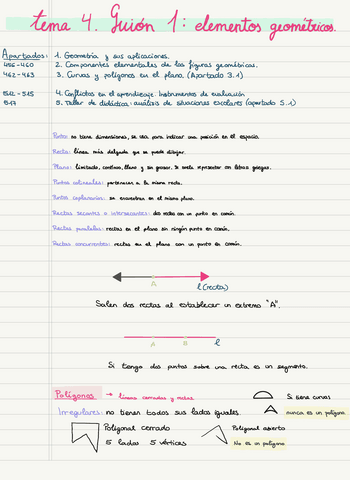 tema 4. Guión 1: elementos geométricos.
Apartados:
456-460
462-463
512-515
517
1. Geometría y sus aplicaciones.
2. Componentes elementales de las figuras geométricas.
3. Curvas y polígonos en el plano. (Apartado 3.1)
4. Conflictos en el aprendizaje. Instrumentos de evaluación
5. Taller de didáctica: análisis de situaciones escolares (apartado 5.1)
Punto: no tiene dimensiones, se usa para indicar una posición en el espacio.
Recta: línea más delgada que se puede dibujar.
Plano: limitado, continuo, llano y sin grosor. Se suele representar con letras griegas.
Puntos colineales: pertenecen a la misma recta.
Puntos coplanarios: se encuentran en el mismo plano.
Rectas secantes o intersecantes: dos rectas con un punto en común.
Rectas paralelas: rectas en el plano sin ningún punto en común.
Rectas concurrentes: rectas en el plano con un punto en común.
A
l (recta)
Salen dos rectas al establecer un extremo "A".
A B l
Si tengo dos puntos sobre una recta es un segmento.
Polígonos → líneas cerradas y rectas
Si tiene curvas
nunca es un polígono
Irregulares: no tienen todos sus lados iguales.
Poligonal cerrado
5 lados 5 vértices
Poligonal abierto
No es un polígono